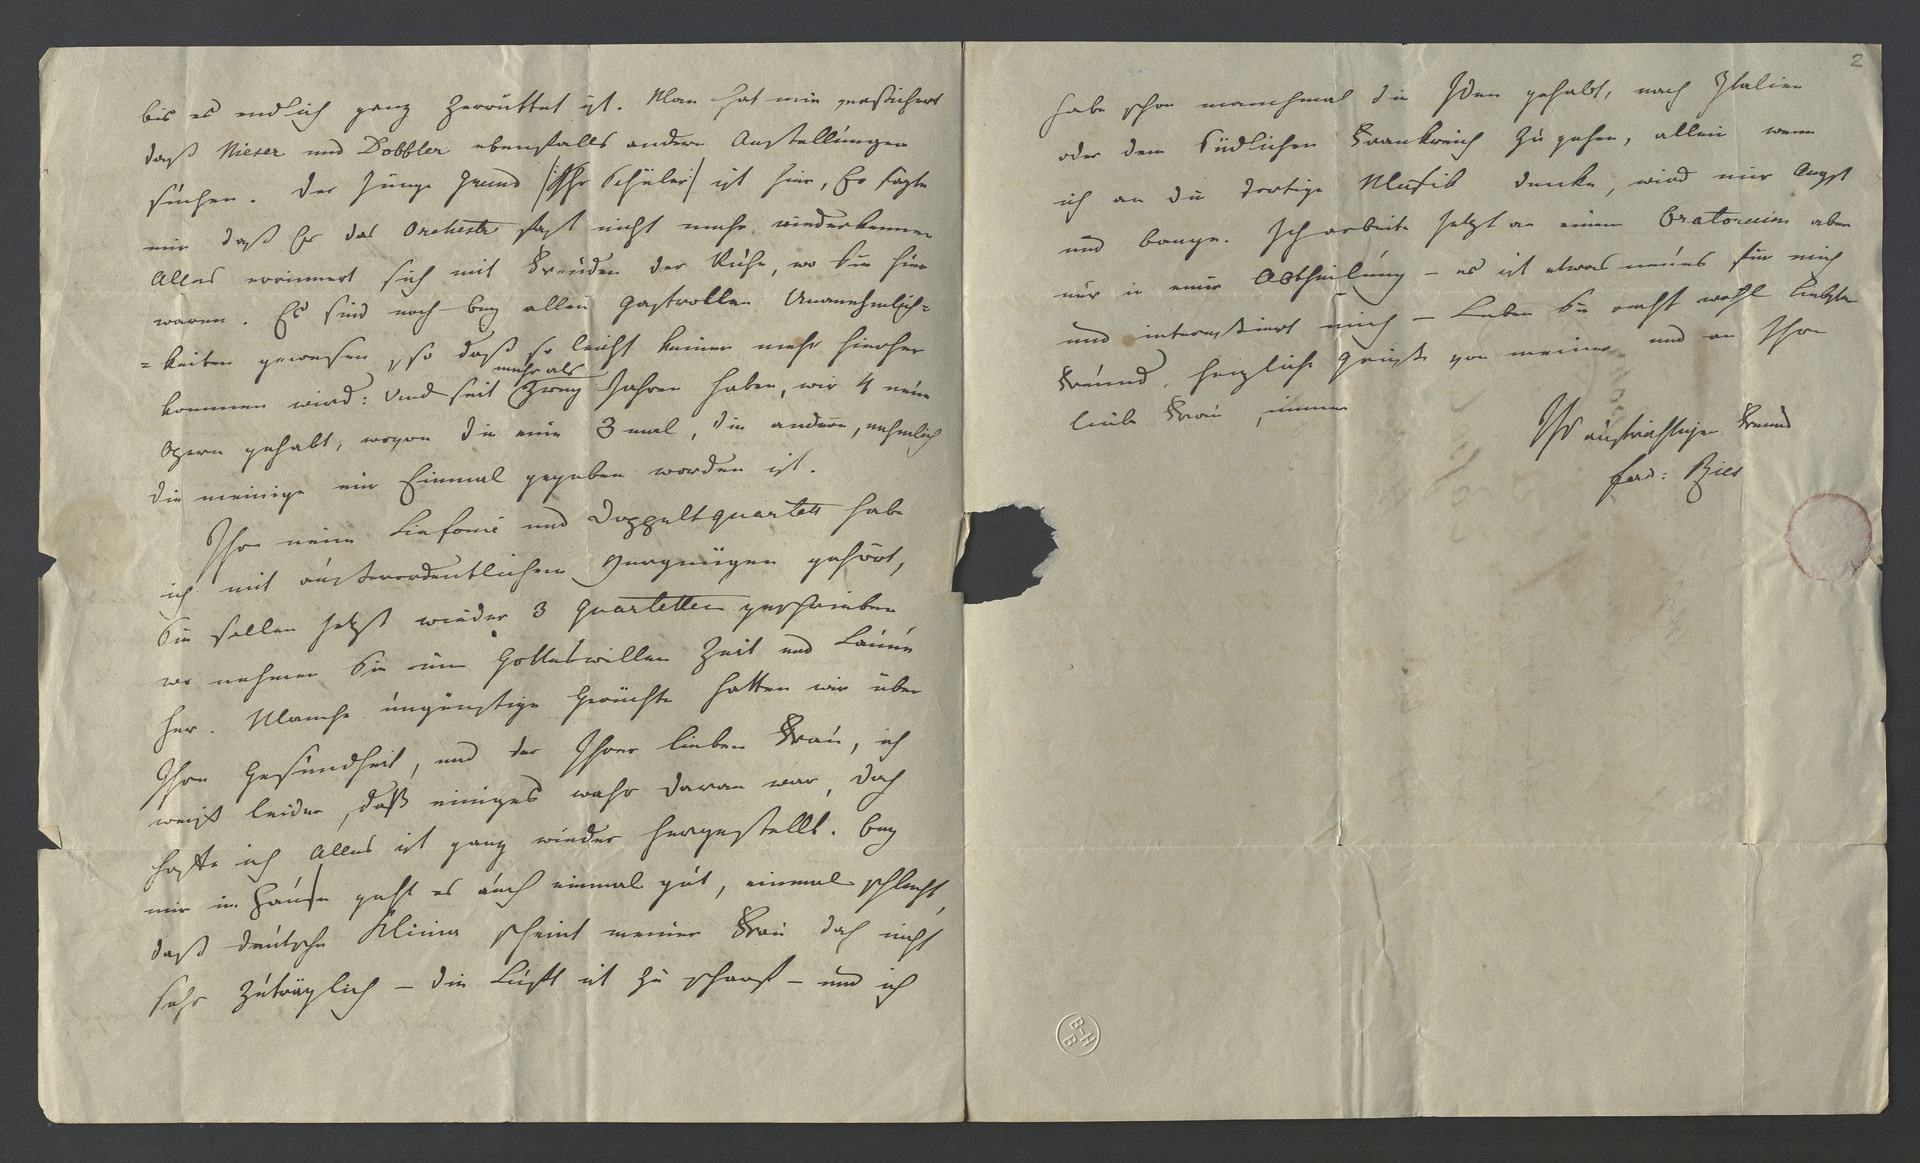 bis es endlich ganz zerrüttet ist. Man hat mir versichert
daß Nieser und Dobbler ebenfalls andere Anstellungen
suchen. Der junge Grund /Ihr Schüler/ ist hier, Er sagte
mir daß Er das Orchester fast nicht mehr wiederkenne
Alles erinnert sich mit Freuden der Ruhe, wo Sie hier
waren. Es sind noch bey allen Gastrollen Unannehmlich=
=keiten gewesen, so daß so leicht keiner mehr hierher
mehr als
kommen wird: Und seit zwey Jahren haben wir 4 neue
Opern gehabt, wovon die eine 3 mal, die andere, nehmlich
die meinige ein Einmal gegeben worden ist.
Ihre neue Sinfonie und Doppeltquartett habe
ich mit außerordentlichen Vergnügen gehört,
Sie sollen jetzt wieder 3 Quartetten geschrieben
wo nehmen Sie um Gotteswillen Zeit und Laune
her. Manche ungünstige Gerüchte hatten wir über
Ihre Gesundheit, und der Ihrer lieben Frau, ich
weiß leider, daß einiges wahr daran war, doch
hoffe ich Alles ist ganz wieder hergestellt. Bey
mir im Hause geht es auch einmal gut, einmal schlecht,
daß deutsche Klima scheint meiner Frau doch nicht
sehr zuträglich – die Luft ist zu scharf – und ich
2
habe schon manchmal die Idee gehabt, nach Italien
oder dem südlichen Frankreich zu gehen, allein wenn
ich an die dortige Musik denke, wird mir Angst
und bange. Ich arbeite jetzt an einem Oratorium aber
nur in einer Abtheilung – es ist etwas neues für mich
und interessiert mich – Leben Sie recht wohl liebster
Freund, herzliche Grüße von meiner und an Ihre
liebe Frau, immer
Ihr aufrichtiger Freund
Ferd: Ries
B-H
B